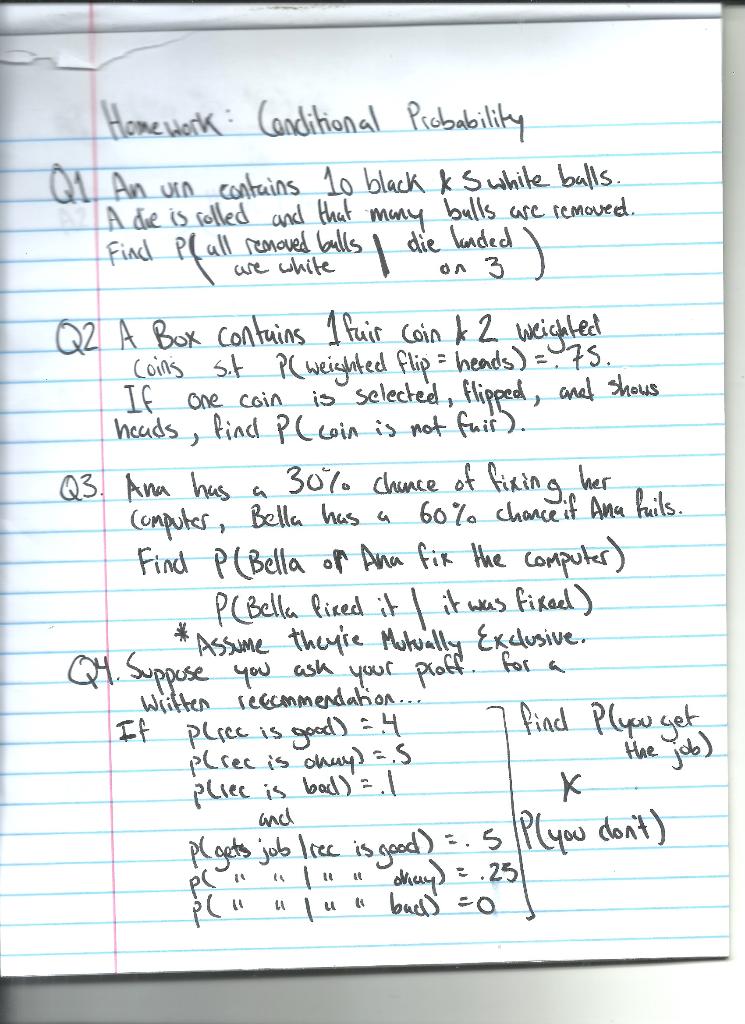 Homework: Conditional Probability
Q1 An urn contains 10 black & 5 white balls.
A die is rolled and that many balls are removed.
Find P(all removed balls are white | die landed on 3)
Q2 A Box contains 1 fair coin & 2 weighted
coins s.t P(weighted flip = heads) = .75.
If one coin is selected, flipped, and shows
heads, find P(coin is not fair).
Q3. Ana has a 30% chance of fixing her
computer, Bella has a 60% chance if Ana fails.
Find P(Bella or Ana fix the computer)
P(Bella fixed it | it was fixed)
* Assume they're Mutually Exclusive.
Q4. Suppose you ask your proff. for a
written recommendation...
If p(rec is good) = .4
p(rec is okay) = .5
p(rec is bad) = .1
and
p(gets job | rec is good) = .5
p( " " | " " okay) = .25
p( " " | " " bad) = 0
find P(you get
the job)
&
P(you don't)